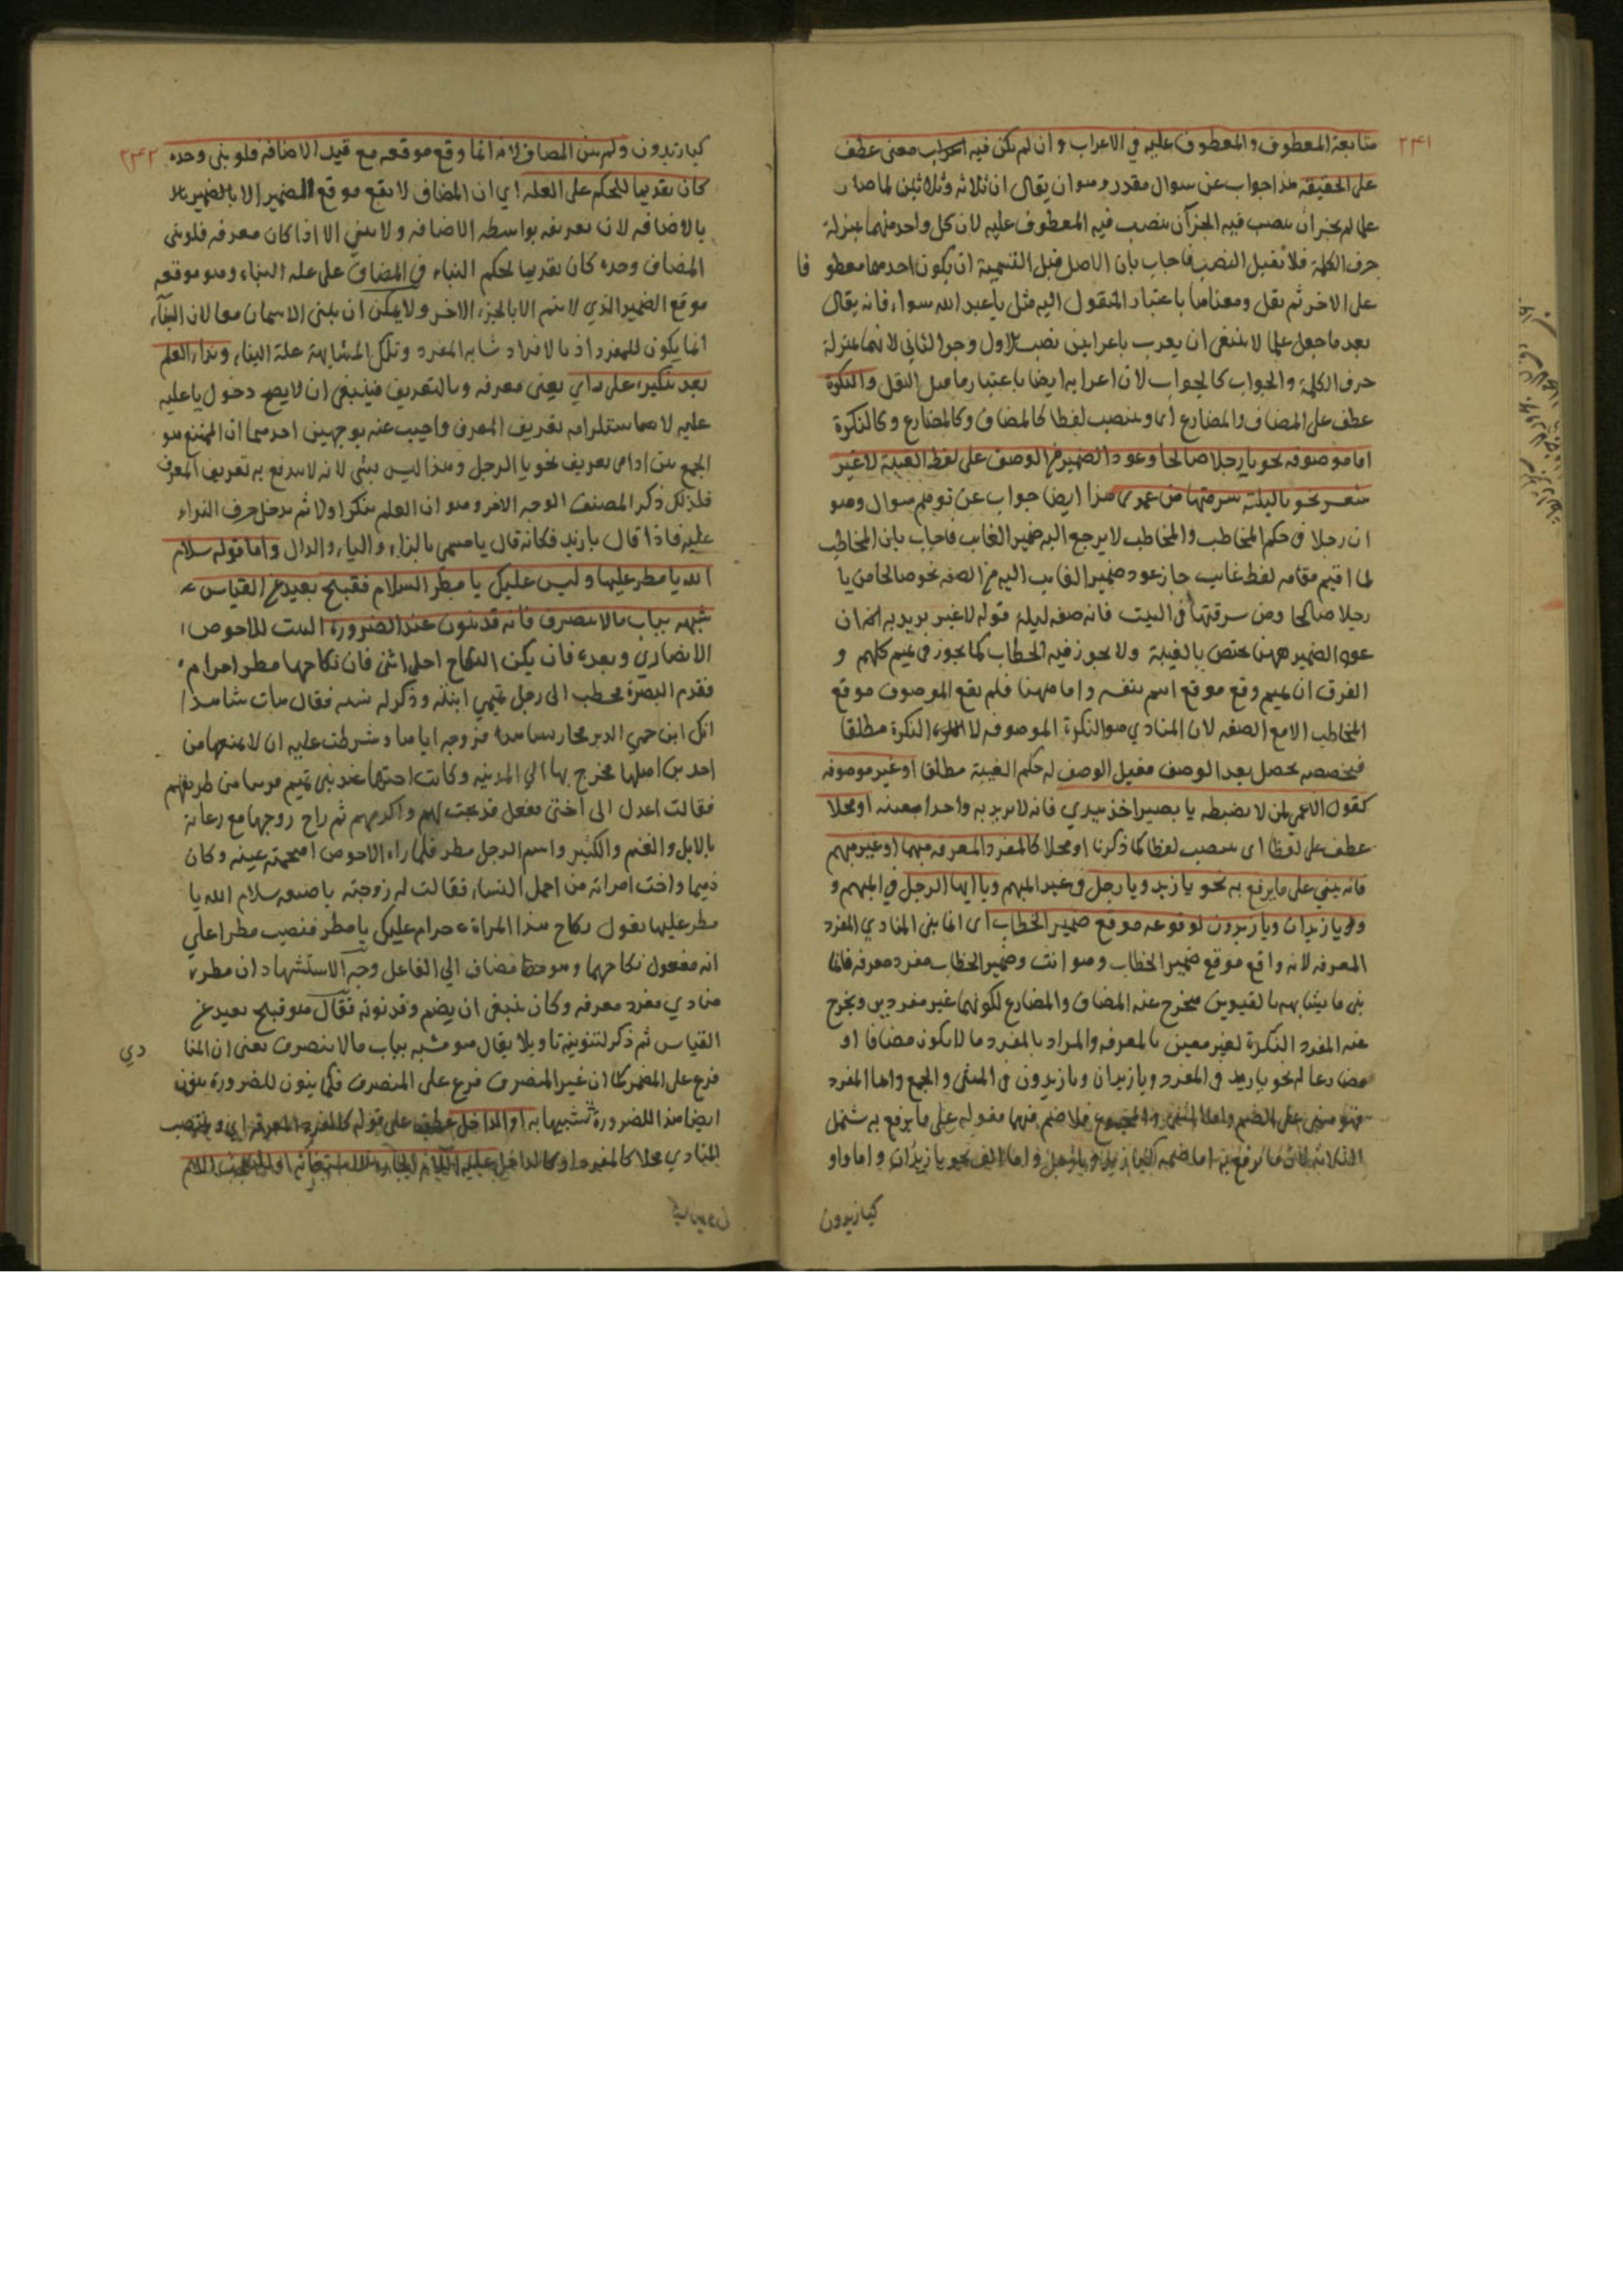 ٢٤١
متابعة المعطوف والمعطوف عليه في الاعراب وان لم يكن فيه معنى عطف
على الحقيقة هذا جواب عن سوال مقدر وهو ان يقال ان ثلاثة وثلاثين لما صار
علما لم يجز ان ينصب فيه الجزآن ينصب فيه المعطوف عليه لان كل واحد منهما بمنزلة
حرف الكلمة فلا تقبل النصب فاجاب بان الاصل قبل التسمية ان يكون احدهما معطوفا
على الاخر ثم نقل ومعناهما باعتبار المنقول اليه مثل يا عبد الله سواء فانه يقال
بعد ما جعل علما لا ينبغي ان يعرب باعرابين نصب الاول وجر الثاني لانهما بمنزلة
حرف الكلمة والجواب كالجواب لان اعرابه ايضا باعتبار ما قبل النقل والنكرة
عطف على المضاف والمضارع اى وينصب لفظا كالمضاف وكالمضارع وكالنكرة
اما موصوفه نحو يا رجلا صالحا وعود الضمير من الوصف على لفظ الغيبة لا غير
نحو يا ليلة سرقتها من هذا ايضا جواب عن توهم سوال وهو
ان رجلا في حكم المخاطب والمخاطب لا يرجع اليه ضمير الغايب فاجاب بان المخاطب
لما اقيم مقامه لفظ غايب جاز عود ضمير الغايب اليه من الصفه نحو صالحا من يا
رجلا صالحا ومن سرقتها في البيت فانه صفه ليلة قوله لا غير يريد به ان
عود الضمير ههنا يختص بالغيبة ولا يجوز فيه الخطاب كما يجوز في تميم كلهم و
الفرق ان تميم وقع موقع اسم بنفسه واما ههنا فلم يقع الموصوف موقع
المخاطب الا مع الصفه لان المنادي هو النكرة الموصوفه لا النكرة مطلقا
فتخصصه يحصل بعد الوصف فقبل الوصف له حكم الغيبة مطلقا او غير موصوفه
كقول الاعمى لمن لا يضبطه يا بصيرا خذ بيدي فانه لا يريد به واحدا بعينه او محلا
عطف على لفظا اى ينصب لفظا كما ذكرنا او محلا كالمفرد المعرفه مبهما او غير مبهم
فانه يبنى على ما يرفع به نحو يا زيد ويا رجل في غير المبهم ويا ايها الرجل في المبهم و
ويا زيدان ويا زيدون لوقوعه موقع ضمير الخطاب اى انما بنى المنادي المفرد
المعرفه لانه واقع موقع ضمير الخطاب وهو انت وضمير الخطاب مفرد معرفه فانما
بنى ما يشابهه بالقيدين فيخرج عنه المضاف والمضارع لكونهما غير مفردين ويخرج
عنه المفرد النكرة لغير معين بالمعرفه والمراد بالمفرد ما لا يكون مضافا او
مضارعا له نحو يا زيد في المفرد ويا زيدان ويا زيدون في المثنى والجمع واما المفرد
فهو مبنى على الضم واما المثنى والمجموع فلا ضم فيهما فقوله على ما يرفع به شمل
الثلاثة لان ما يرفع به اما ضمه كيا زيد ويا رجل واما الف نحو يا زيدان واما واو
كيا زيدون
٢٤٢
كيا زيدون ولم يبن المضاف لانه انما وقع موقعه مع قيد الاضافه فلو بنى وحده
كان تقديما للحكم على العله اي ان المضاف لا يقع موقع الضمير الا
بالاضافه لان تعريفه بواسطه الاضافه ولا يبنى الا اذا كان معرفه فلو بنى
المضاف وحده كان تقديما لحكم البناء في المضاف على عله البناء وهو موقعه
موقع الضمير الذي لا يتم الا بالجزء الاخر ولا يمكن ان يبنى الاسمان معا لان البناء
انما يكون للمفرد اذ بالافراد شابه المفرد وتلك المشابهة علة البناء ونداء العلم
بعد تنكيره على راي يعنى معرفه وبالتعريف فينبغى ان لا يصح دخول يا عليه
عليه لاستلزامه تعريف المعرف واجيب عنه بوجهين احدهما ان الممتنع هو
الجمع بين اداتى تعريف نحو يا الرجل وهذا ليس بشئ لانه لا يندفع به تعريف المعرف
فلذلك ذكر المصنف الوجه الاخر وهو ان العلم ينكر اولا ثم يدخل حرف النداء
عليه فاذا قال يا زيد فكانه قال يا مسمى بالزاء والياء والدال واما قوله سلام
الله يا مطر عليها وليس عليك يا مطر السلام فقبيح بعيد عن القياس
شبهه بباب ما لا ينصرف فانه قد ينون عند الضرورة البيت للاحوص
الانصاري وبعده فان يكن النكاح احل انثى فان نكاحها مطرا حرام
فقدم البصرة فخطب الى رجل تميمي ابنته وذكر له نسبه فقال هات شاهدا
انك ابن حمي الدبر فزوجه اياها وشرطت عليه ان لا يمنعها من
احد من اهلها فخرج بها الي المدينه وكانت اختها عند بنى تميم قريبا من طريقهم
فقالت اعدل الى اختى ففعل فذبحت لهم واكرمهم ثم راح زوجها مع رعاته
بالابل والغنم والكثير واسم الرجل مطر فلما راه الاحوص عينه وكان
ذميما واخت امراته من اجمل النساء فقالت له زوجته سلام الله يا
مطر عليها يقول نكاح هذا المراة حرام عليك يا مطر فنصب مطرا على
انه مفعول نكاحها وهو مضاف الي الفاعل وجه الاستشهاد ان مطر
منادي مفرد معرفه وكان ينبغى ان يضم وقد نونه فقال هو قبيح بعيد عن
القياس ثم ذكر لتنوينه تاويلا يقال هو مشبه بباب ما لا ينصرف يعنى ان المنادي
فرع على المضمر كما ان غير المنصرف فرع على المنصرف فكما ينون للضرورة ينون
ايضا هذا للضرورة تشبيها به او الداخل عطف على قوله كالمفرد المعرفه اي وينتصب
المنادي محلا كالمفرد او كالداخل عليه اللام الجاره للاستغاثه او للتعجب اللام